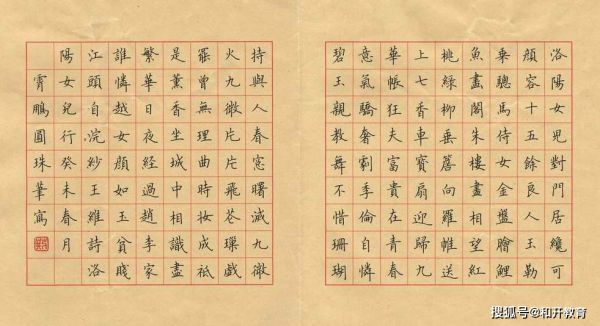 洛陽女兒對門居纔可
顏容十五餘良人玉勒
乘驄馬侍女金盤膾鯉
魚畫閣朱樓盡相望紅
桃綠柳垂簷向羅帷送
上七香車寶扇迎歸九
華帳狂夫富貴在青春
意氣驕奢劇季倫自憐
碧玉親教舞不惜珊瑚
持與人春窓曙滅九微
火九微片片飛花璅戲
罷曾無理曲時妝成祗
是薰香坐城中相識盡
繁華日夜經過趙李家
誰憐越女顏如玉貧賤
江頭自浣紗王維詩洛
陽女兒行癸未春月
霄鵬圓珠筆寫
搜狐号@和开教育